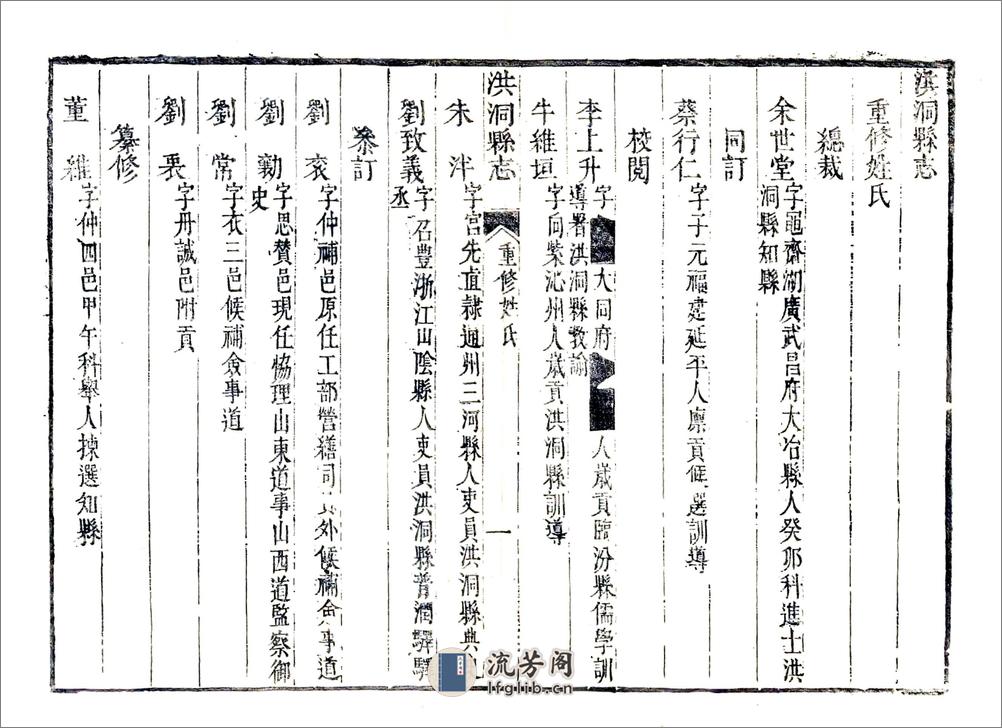 洪洞縣志
重修姓氏
總裁
余世堂 字黽齋湖廣武昌府大冶縣人癸卯科進士洪
洞縣知縣
同訂
蔡行仁 字子元福建延平人廩貢候選訓導
校閱
李上升 字 大同府 人歲貢臨汾縣儒學訓
導署洪洞縣教諭
牛維垣 字向紫沁州人歲貢洪洞縣訓導
洪洞縣志 重修姓氏 一
朱泮 字宮先直隸通州三河縣人吏員洪洞縣典
劉致義 字召豐浙江山陰縣人吏員洪洞縣普潤驛驛
丞
叅訂
劉衮 字仲補邑原任工部營繕司 外候補僉事道
劉勷 字思贊邑現任協理山東道事山西道監察御
史
劉常 字衣三邑候補僉事道
劉 字丹誠邑附貢
纂修
董維 字仲四邑甲午科舉人揀選知縣
流芳阁
lfglib.cn